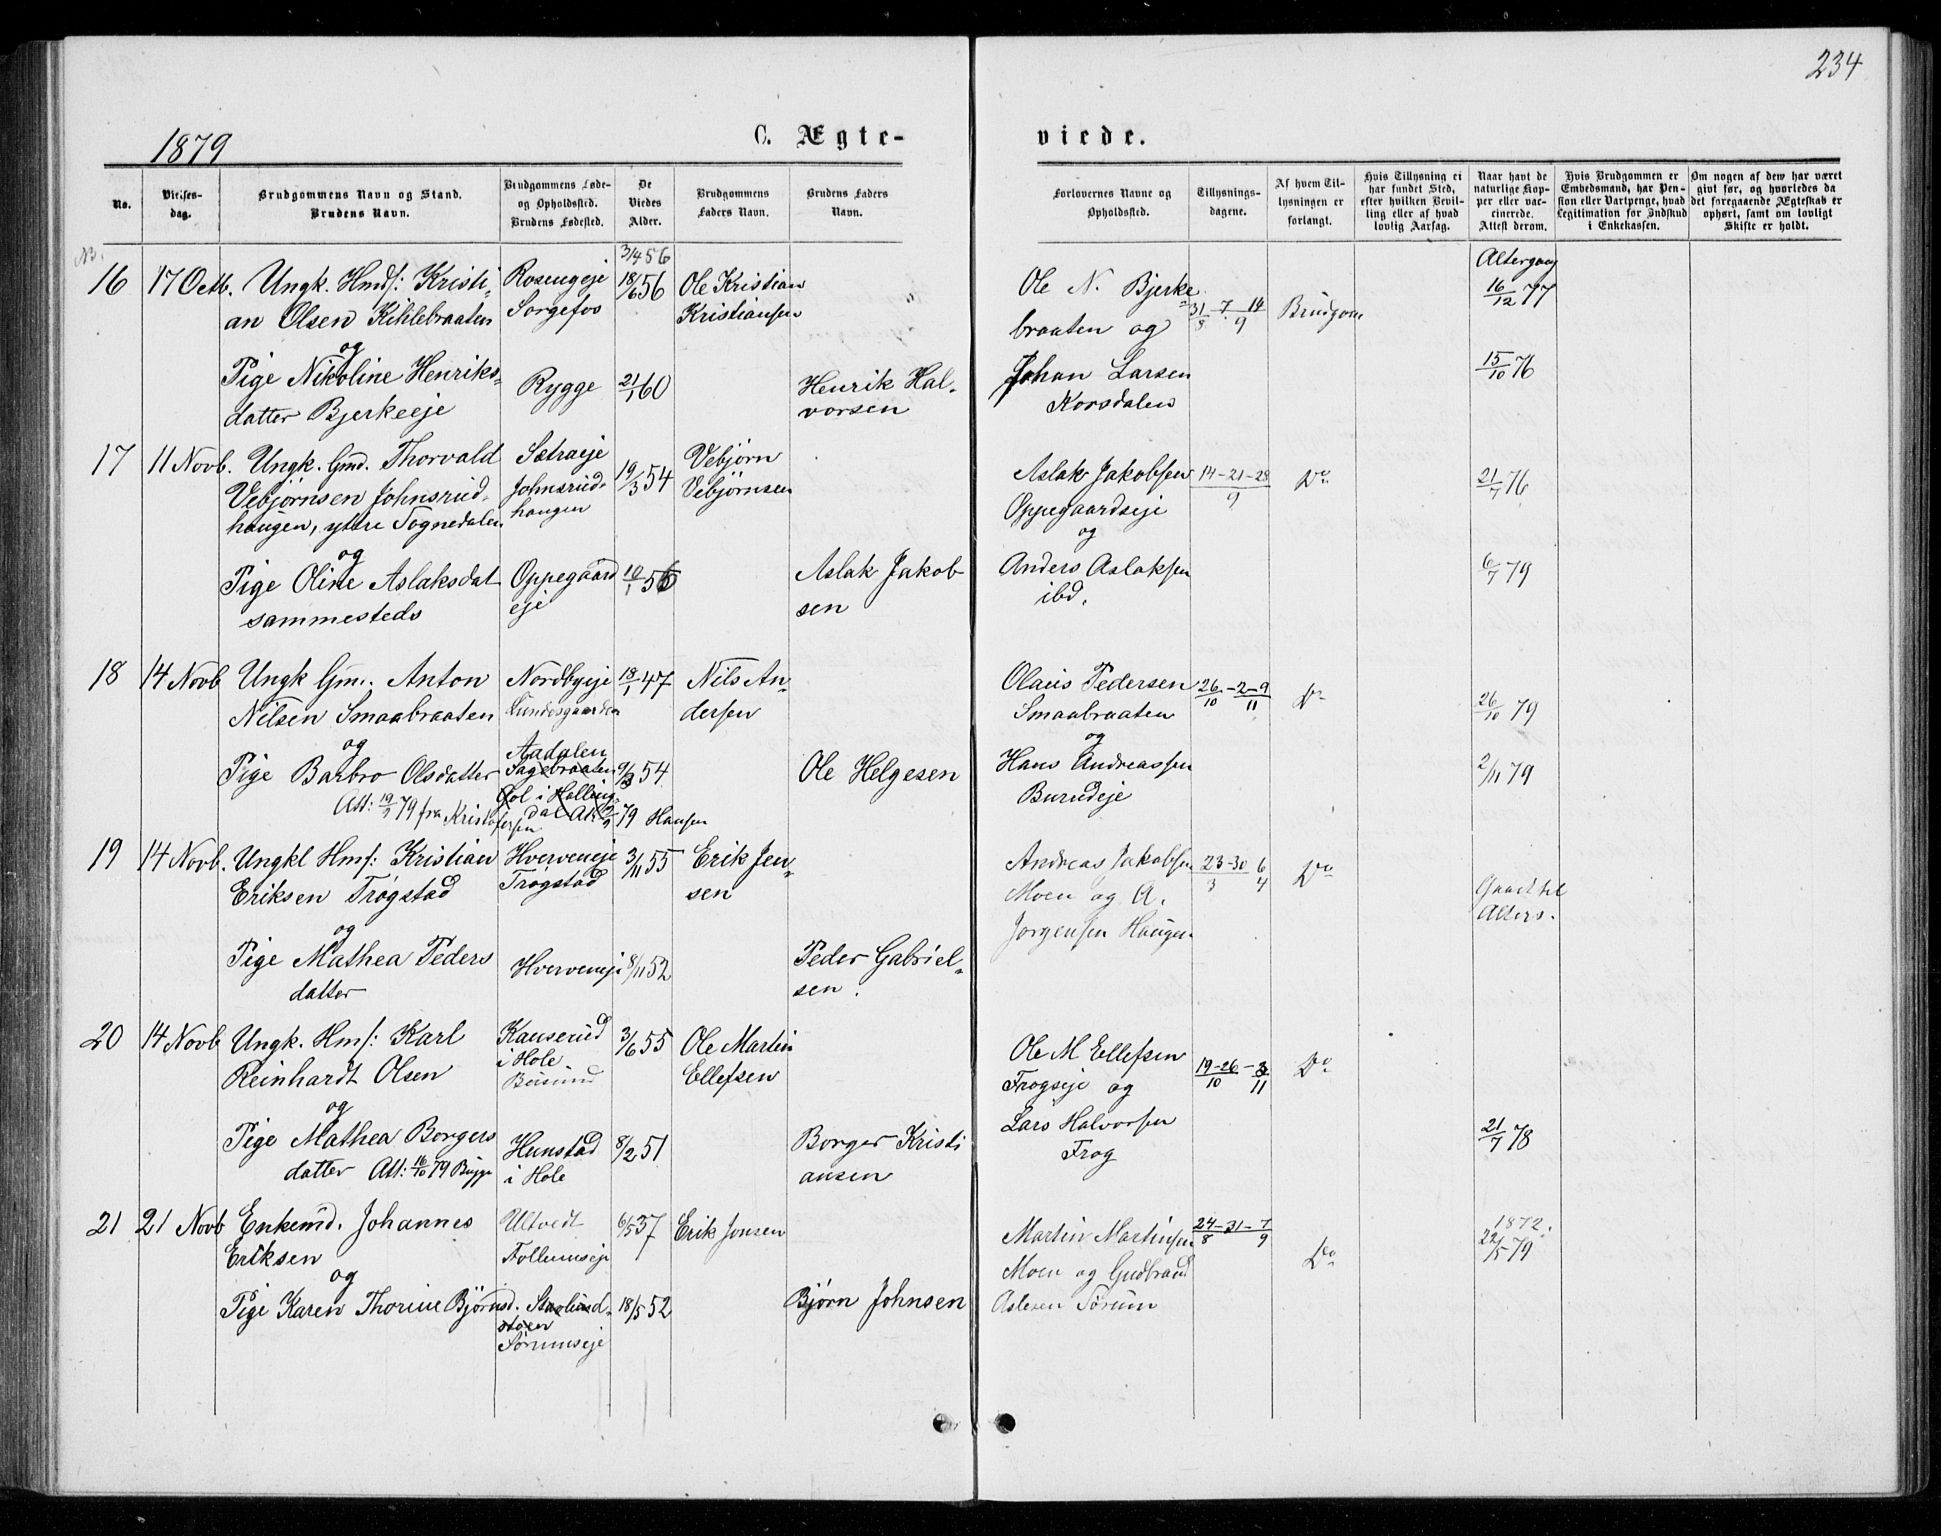 234
1879
C. Ægte-
viede.
No.
Vielses-
dag.
Brudgommens Navn og Stand.
Brudens Navn.
Brudgommens Føde-
og Opholdssted.
Brudens Fødested.
De
Viedes
Alder.
Brudgommens
Faders Navn.
Brudens Faders
Navn.
Forlovernes Navne og
Opholdssted.
Tillysnings-
dagene.
Af hvem Til-
lysningen er
forlangt.
Hvis Tillysning ei
har fundet Sted,
efter hvilken Bevil-
ling eller af hvad
lovlig Aarsag.
Naar havt de
naturlige Kop-
per eller vac-
cinerede.
Attest derom.
Hvis Brudgommen er
Embedsmand, har Pen-
sion eller Vartpenge, hvad
Legitimation for Indskud
i Enkekassen.
Om nogen af dem har været
gift før, og hvorledes da
det foregaaende Ægteskab er
ophørt, samt om lovligt
Skifte er holdt.
16
17 Octb.
Ungk. Hmdf: Kristi-
an Olsen Kihlebraaten
og
Pige Nikoline Henriks-
datter Bjerkeeje
Rosengeje
Sorgefos
Rygge
3/4 56
18/6 56
21/1 60
Ole Kristian
Kristiansen
Henrik Hal-
vorsen
Ole N. Bjerke
braaten og
Johan Larsen
Korsdalen
31/8 7. 14/9
Brudgom
Altergang
16/12 77
15/10 76
17
11 Novb.
Ungk. Gmd. Thorvald
Vebjørnsen Johnsrud-
haugen, ytre Tognedalen
og
Pige Oline Aslaksdat
sammesteds
Sætraeje
Johnsrud-
haugen
Oppegaard
eje
19/3 54
10/1 56
Vebjørn
Vebjørnsen
Aslak Jakob
sen
Aslak Jakobsen
Oppegaardseje
og
Anders Aslaksen
ibd.
14-21-28/9
Do
21/7 76
6/7 79
18
14 Novb
Ungk Gm. Anton
Nilsen Smaabraaten
og
Pige Barbro Olsdatter
Att: 19/9 79 fra Kristofersen
Nordbyeje
Lundesgaarden
Aadalen
Sagebraaten
Gol i Halling
dal At. 79 Hansen
18/1 47
9/3 54
Nils An-
dersen
Ole Helgesen
Olaus Pedersen
Smaabraaten
og
Hans Andreassen
Burudeje
26/10 - 2-9/11
Do
26/10 79
2/11 79
19
14 Novb.
Ungkl Hmf: Kristian
Eriksen Trøgstad
og
Pige Mathea Peders
datter
Hverveneje
Trøgstad
Hverveneje
3/11 55
8/11 52
Erik Jen-
sen
Peder Gabriel-
sen.
Andreas Jakobsen
Moen og A.
Jørgensen Haugen
23-30/3 6/4
Do
Gaaet til
Alters.
20
14 Novb
Ungk. Hmf: Karl
Reinhardt Olsen
og
Pige Mathea Borgers
datter Att: 16/10 79 Bugge
Kauserud
i Hole
Hunstad
i Hole
3/6 55
8/2 51
Ole Martin
Ellefsen
Borger Kristi
ansen
Ole M Ellefsen
Frogseje og
Lars Halvorsen
Frog
19-26/10 - 3/11
Do
21/7 78
21
21 Novb
Enkemd. Johannes
Eriksen
og
Pige Karen Thorine Bjørnsd.
Ultvedt
Follumseje
Starlund-
støen
Sørumseje
6/5 37
18/5 52
Erik Jonsen
Bjørn Johnsen
Martin Martinsen
Moen og Gudbrand
Aslesen Sørum
24-31/8 - 7/9
Do
1872.
22/5 79